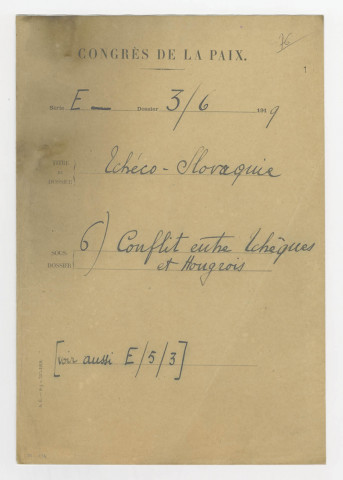 76
1
CONGRÈS DE LA PAIX.
Série E Dossier 3/6 1849
TITRE DU DOSSIER Tchéco-Slovaquie
SOUS-DOSSIER 6) Conflit entre Tchèques
et Hongrois
[voir aussi E/5/3]